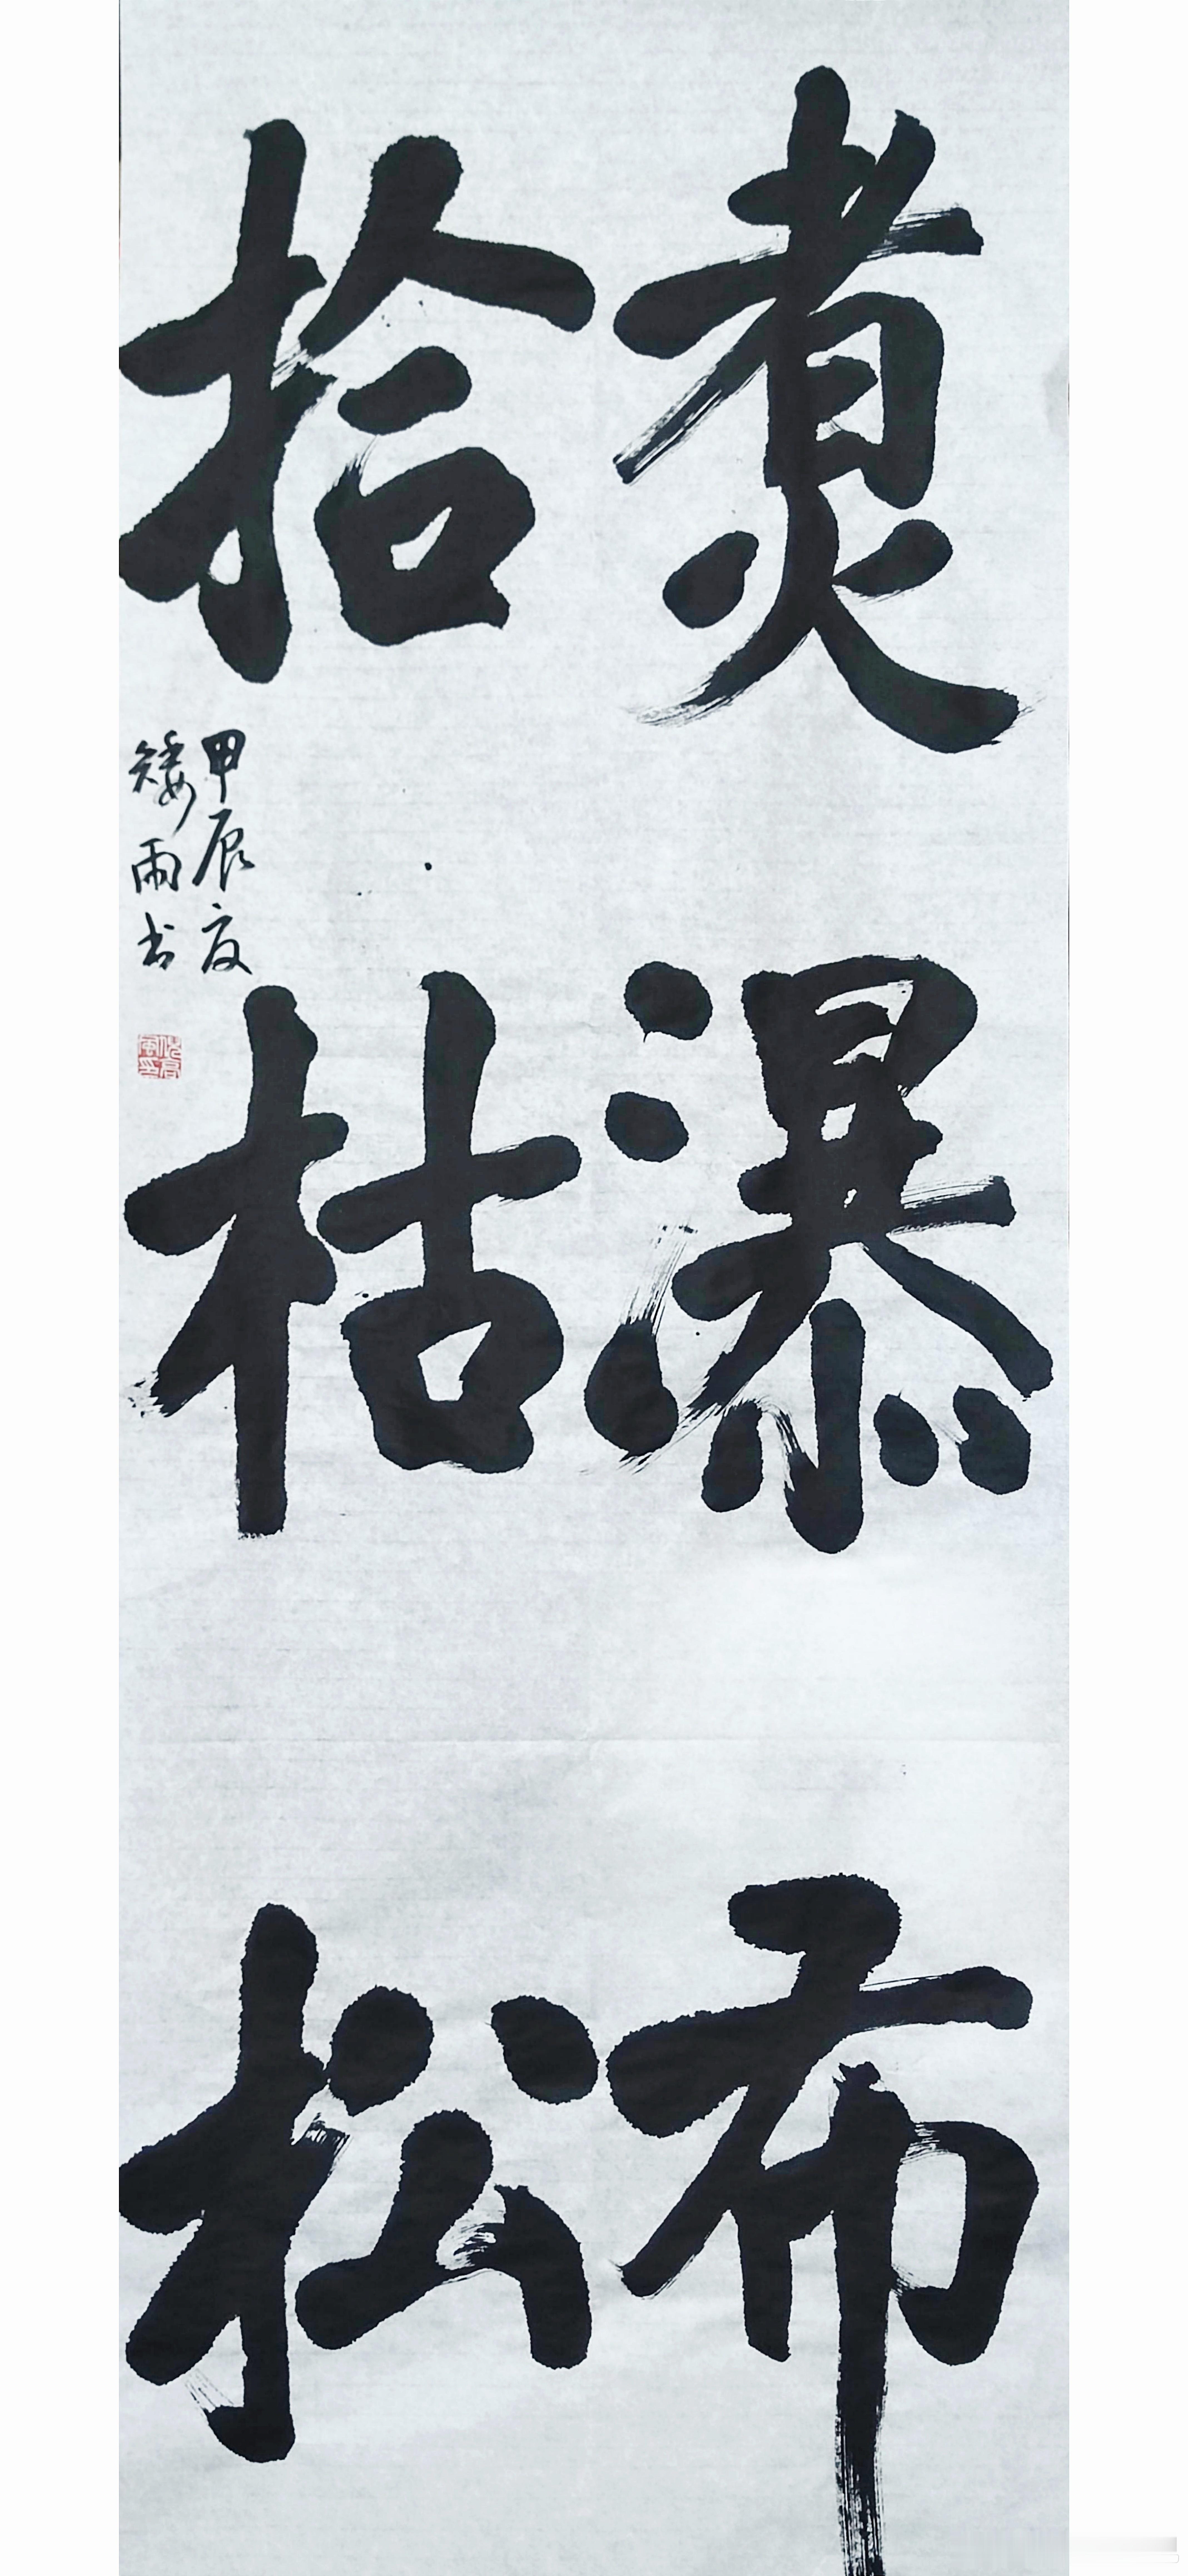 煮瀑布
拾枯松
甲辰夏
矮雨书